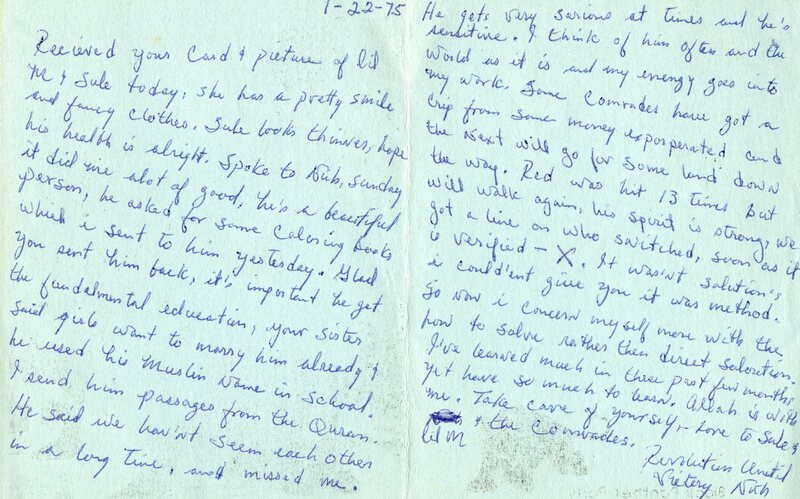 1-22-75
Recieved your Card & picture of lil
M & Sule today, she has a pretty smile
and fancy clothes. Sule looks thinner, hope
his health is alright. Spoke to Nub, sunday
it did me alot of good, he's a beautiful
person, he asked for some coloring books
which i sent to him yesterday. Glad
you sent him back, it's important he get
the fundalmental education, your sister
said girls want to marry him already &
he used his Muslim name in school.
I send him passages from the Quran.
He said we hav'nt seem each other
in a long time, and missed me.
He gets very serious at times and he's
sensitive. I think of him often and the
world as it is and my energy goes into
my work. Some Comrades have got a
crip from some money exporperated and
the next will go for some land down
the way. Red was hit 13 times but
will walk again, his spirit is strong, we
got a line on who switched, soon as it
is verified - X. It wasn't solution's
i could'ent give you it was method.
So now i concern myself more with the
how to solve rather then direct solvation.
I've learned much in these past few months
yet have so much to learn. Allah is with
me. Take care of yourself - Love to Sule &
lil M & the Comrades.
Revolution Until
Victory Nub